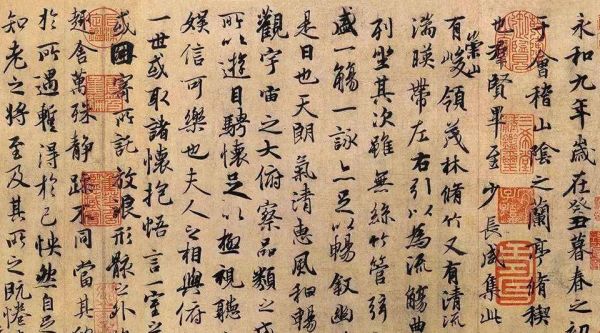 永和九年歲在癸丑暮春之初
于會稽山陰之蘭亭脩禊
也群賢畢至少長咸集此
崇山
有峻領茂林脩竹又有清流
湍暎帶左右引以為流觴曲
列坐其次雖無絲竹管弦
盛一觴一詠亦足以暢敘幽
是日也天朗氣清惠風和暢
觀宇宙之大俯察品類之
所以遊目騁懷足以極視聽
娛信可樂也夫人之相與俯
一世或取諸懷抱悟言一室
或因寄所託放浪形骸之外
趣舍萬殊靜躁不同當其
於所遇暫得於己怏然自
知老之將至及其所之既惓